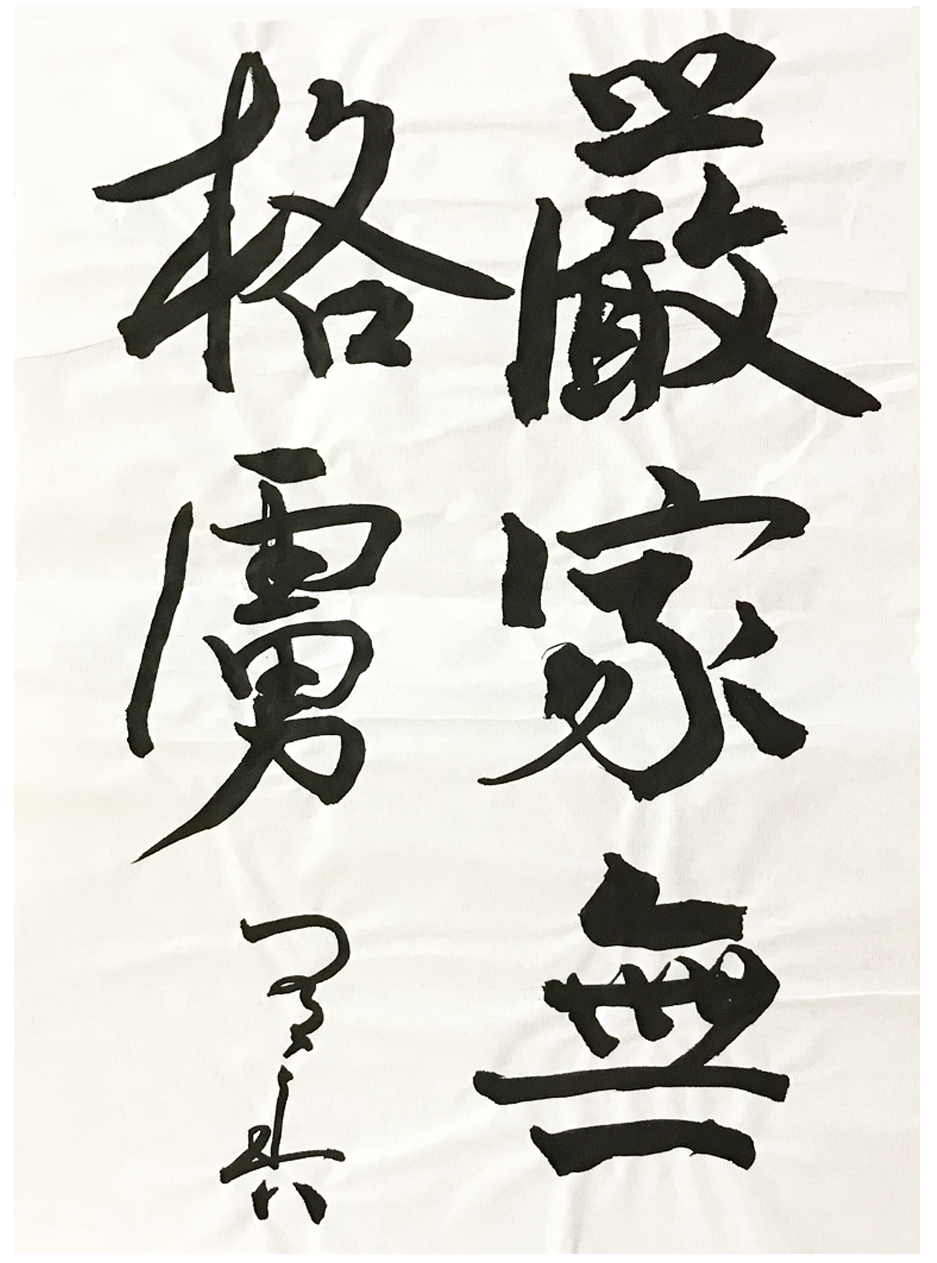 嚴家無
格虜